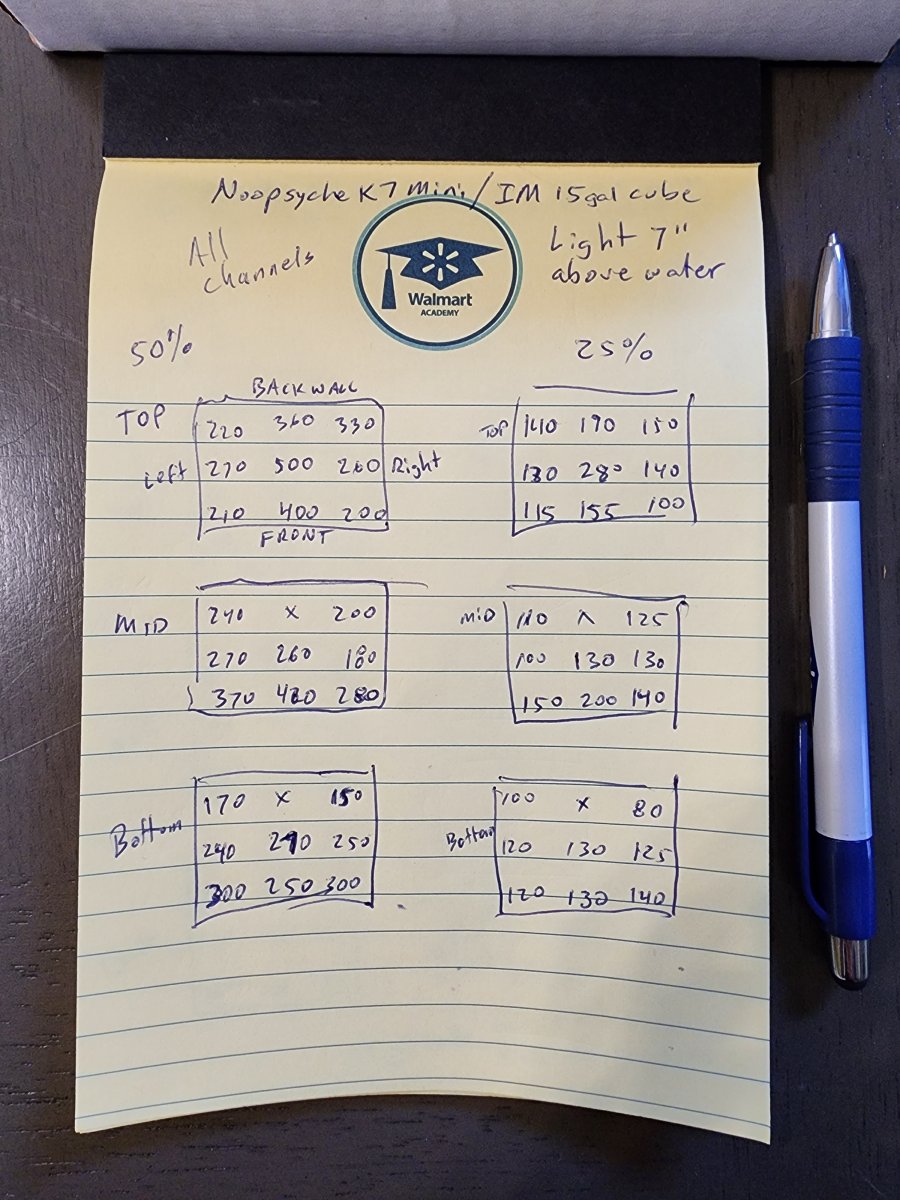 Noopsyche K7 mini / IM 15gal cube
All channels
Light 7" above water
Walmart
ACADEMY
50%
BACK WALL
TOP
220 360 330
Left
270 500 260
Right
210 400 200
FRONT
MID
240 x 200
270 260 180
370 420 280
Bottom
170 x 150
240 290 250
300 250 300
25%
TOP
140 190 150
130 280 140
115 155 100
MID
110 x 125
100 130 130
150 200 140
Bottom
100 x 80
120 130 125
120 130 140